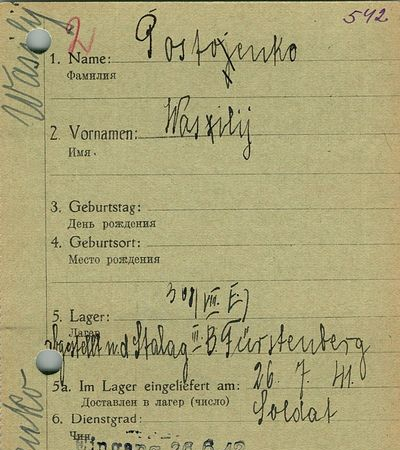 542
2
1. Name: Postoẋenko
Фамилия
2. Vornamen: Wassilij
Имя.
3. Geburtstag:
День рождения
4. Geburtsort:
Место рождения
308/VIII E)
5. Lager:
Лагерь
abgestellt n/d Stalag III B. Fürstenberg
5a. Im Lager eingeliefert am: 26. 7. 41.
Доставлен в лагерь (число)
6. Dienstgrad: Soldat
Чин
Eingang 26.6.42
Wassilij
enko